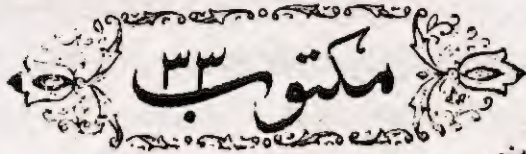 مکتوب ۳۳